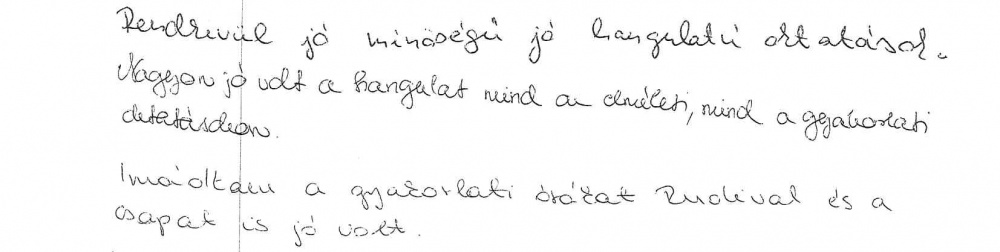 Rendkívül jó minőségű jó hangulatú oktatások.
Nagyon jó volt a hangulat mind az elméleti, mind a gyakorlati
oktatásokon.
Imádtam a gyakorlati órákat Rudival és a
csapat is jó volt.